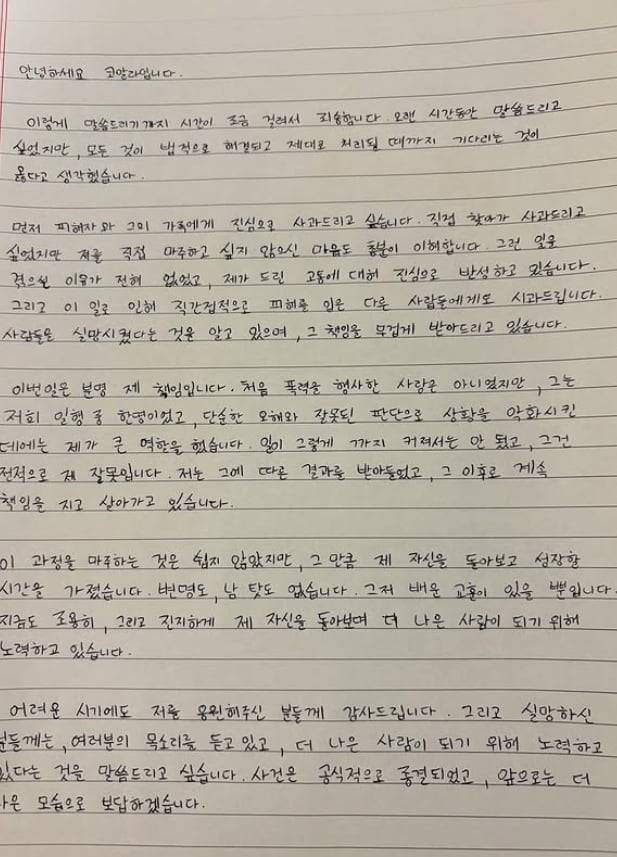 안녕하세요 코알라입니다.
이렇게 말씀드리기까지 시간이 조금 걸려서 죄송합니다. 오랜 시간동안 말씀드리고
싶었지만, 모든 것이 법적으로 해결되고 제대로 처리될 때까지 기다리는 것이
옳다고 생각했습니다.
먼저 피해자와 그의 가족에게 진심으로 사과드리고 싶습니다. 직접 찾아가 사과드리고
싶었지만 저를 직접 마주하고 싶지 않으신 마음도 충분이 이해합니다. 그런 일을
겪으실 이유가 전혀 없었고, 제가 드린 고통에 대해 진심으로 반성하고 있습니다.
그리고 이 일로 인해 직간접적으로 피해를 입은 다른 사람들에게도 사과드립니다.
사람들을 실망시켰다는 것을 알고 있으며, 그 책임을 무겁게 받아드리고 있습니다.
이번일은 분명 제 책임입니다. 처음 폭력을 행사한 사람은 아니였지만, 그는
저희 일행 중 한명이었고, 단순한 오해와 잘못된 판단으로 상황을 악화시킨
데에는 제가 큰 역할을 했습니다. 일이 그렇게 까지 커져서는 안 됐고, 그건
전적으로 제 잘못입니다. 저는 그에 따른 결과를 받아들었고, 그 이후로 계속
책임을 지고 살아가고 있습니다.
이 과정을 마주하는 것은 쉽지 않았지만, 그 만큼 제 자신을 돌아보고 성장할
시간을 가졌습니다. 변명도, 남 탓도 없습니다. 그저 배운 교훈이 있을 뿐입니다.
지금도 조용히, 그리고 진지하게 제 자신을 돌아보며 더 나은 사람이 되기 위해
노력하고 있습니다.
어려운 시기에도 저를 응원해주신 분들께 감사드립니다. 그리고 실망하신
분들께는, 여러분의 목소리를 듣고 있고, 더 나은 사람이 되기 위해 노력하고
있다는 것을 말씀드리고 싶습니다. 사건은 공식적으로 종결되었고, 앞으로는 더
나은 모습으로 보답하겠습니다.